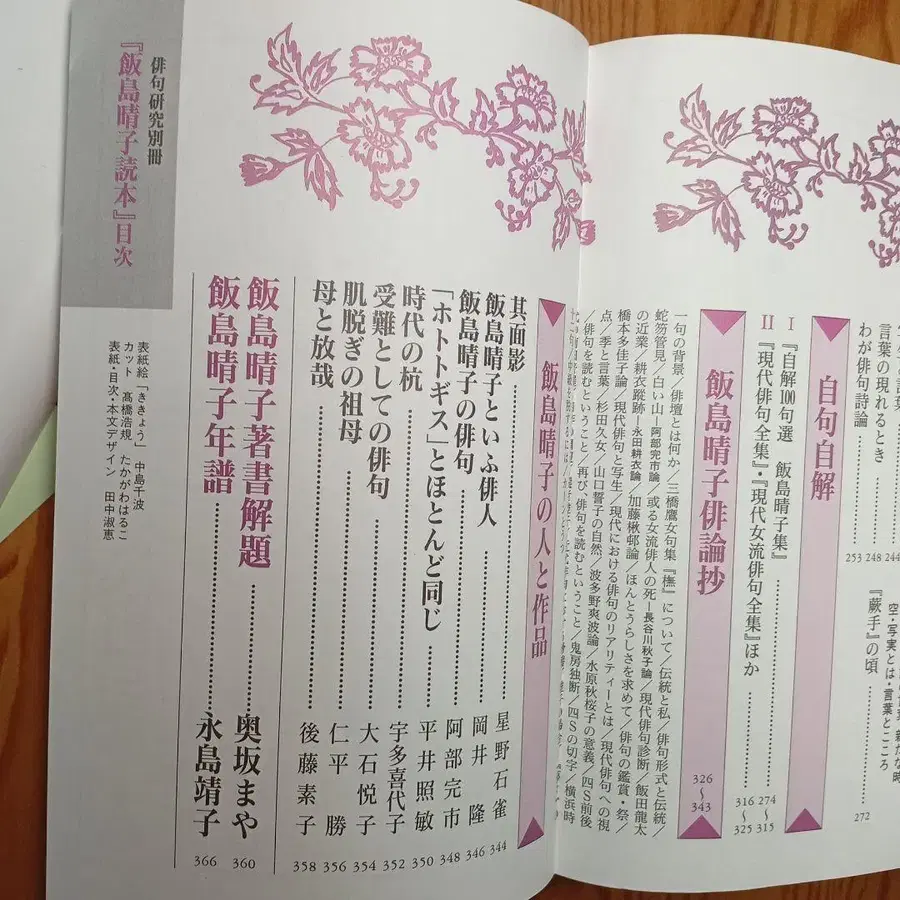 空・写実とは・言葉とこころ
272
『蕨手』の頃
言葉の現れるとき 248
わが俳句詩論 253
自句自解
Ⅰ 『自解100句選 飯島晴子集』 274〜315
Ⅱ 『現代俳句全集』・『現代女流俳句全集』ほか 316〜325
飯島晴子俳論抄 326〜343
一句の背景／俳壇とは何か／三橋鷹女句集『橅』について／伝統と私／俳句形式と伝統／
蛇笏管見／白い山―阿部完市論／或る女流俳人の死―長谷川秋子論／現代俳句診断／飯田龍太
の近業／耕衣蹤跡―永田耕衣論／加藤楸邨論／ほんとうらしさを求めて／俳句の鑑賞・祭／
橋本多佳子論／現代俳句と写生／現代における俳句のリアリティーとは／現代俳句への視
点／季と言葉／杉田久女／山口誓子の自然／波多野爽波論／水原秋桜子の意義／四Ｓ前後
／俳句を読むということ／再び、俳句を読むということ／鬼房独断／四Ｓの切字／横浜時
飯島晴子の人と作品
其面影 星野石雀 344
飯島晴子といふ俳人 岡井 隆 346
飯島晴子の俳句 阿部完市 348
「ホトトギス」とほとんど同じ 平井照敏 350
時代の杭 宇多喜代子 352
受難としての俳句 大石悦子 354
肌脱ぎの祖母 仁平 勝 356
母と放哉 後藤素子 358
飯島晴子著書解題 奥坂まや 360
飯島晴子年譜 永島靖子 366
俳句研究別冊
『飯島晴子読本』目次
表紙絵「ききょう」中島千波
カット 高橋浩規 たかがわはるこ
表紙・目次・本文デザイン 田中淑恵